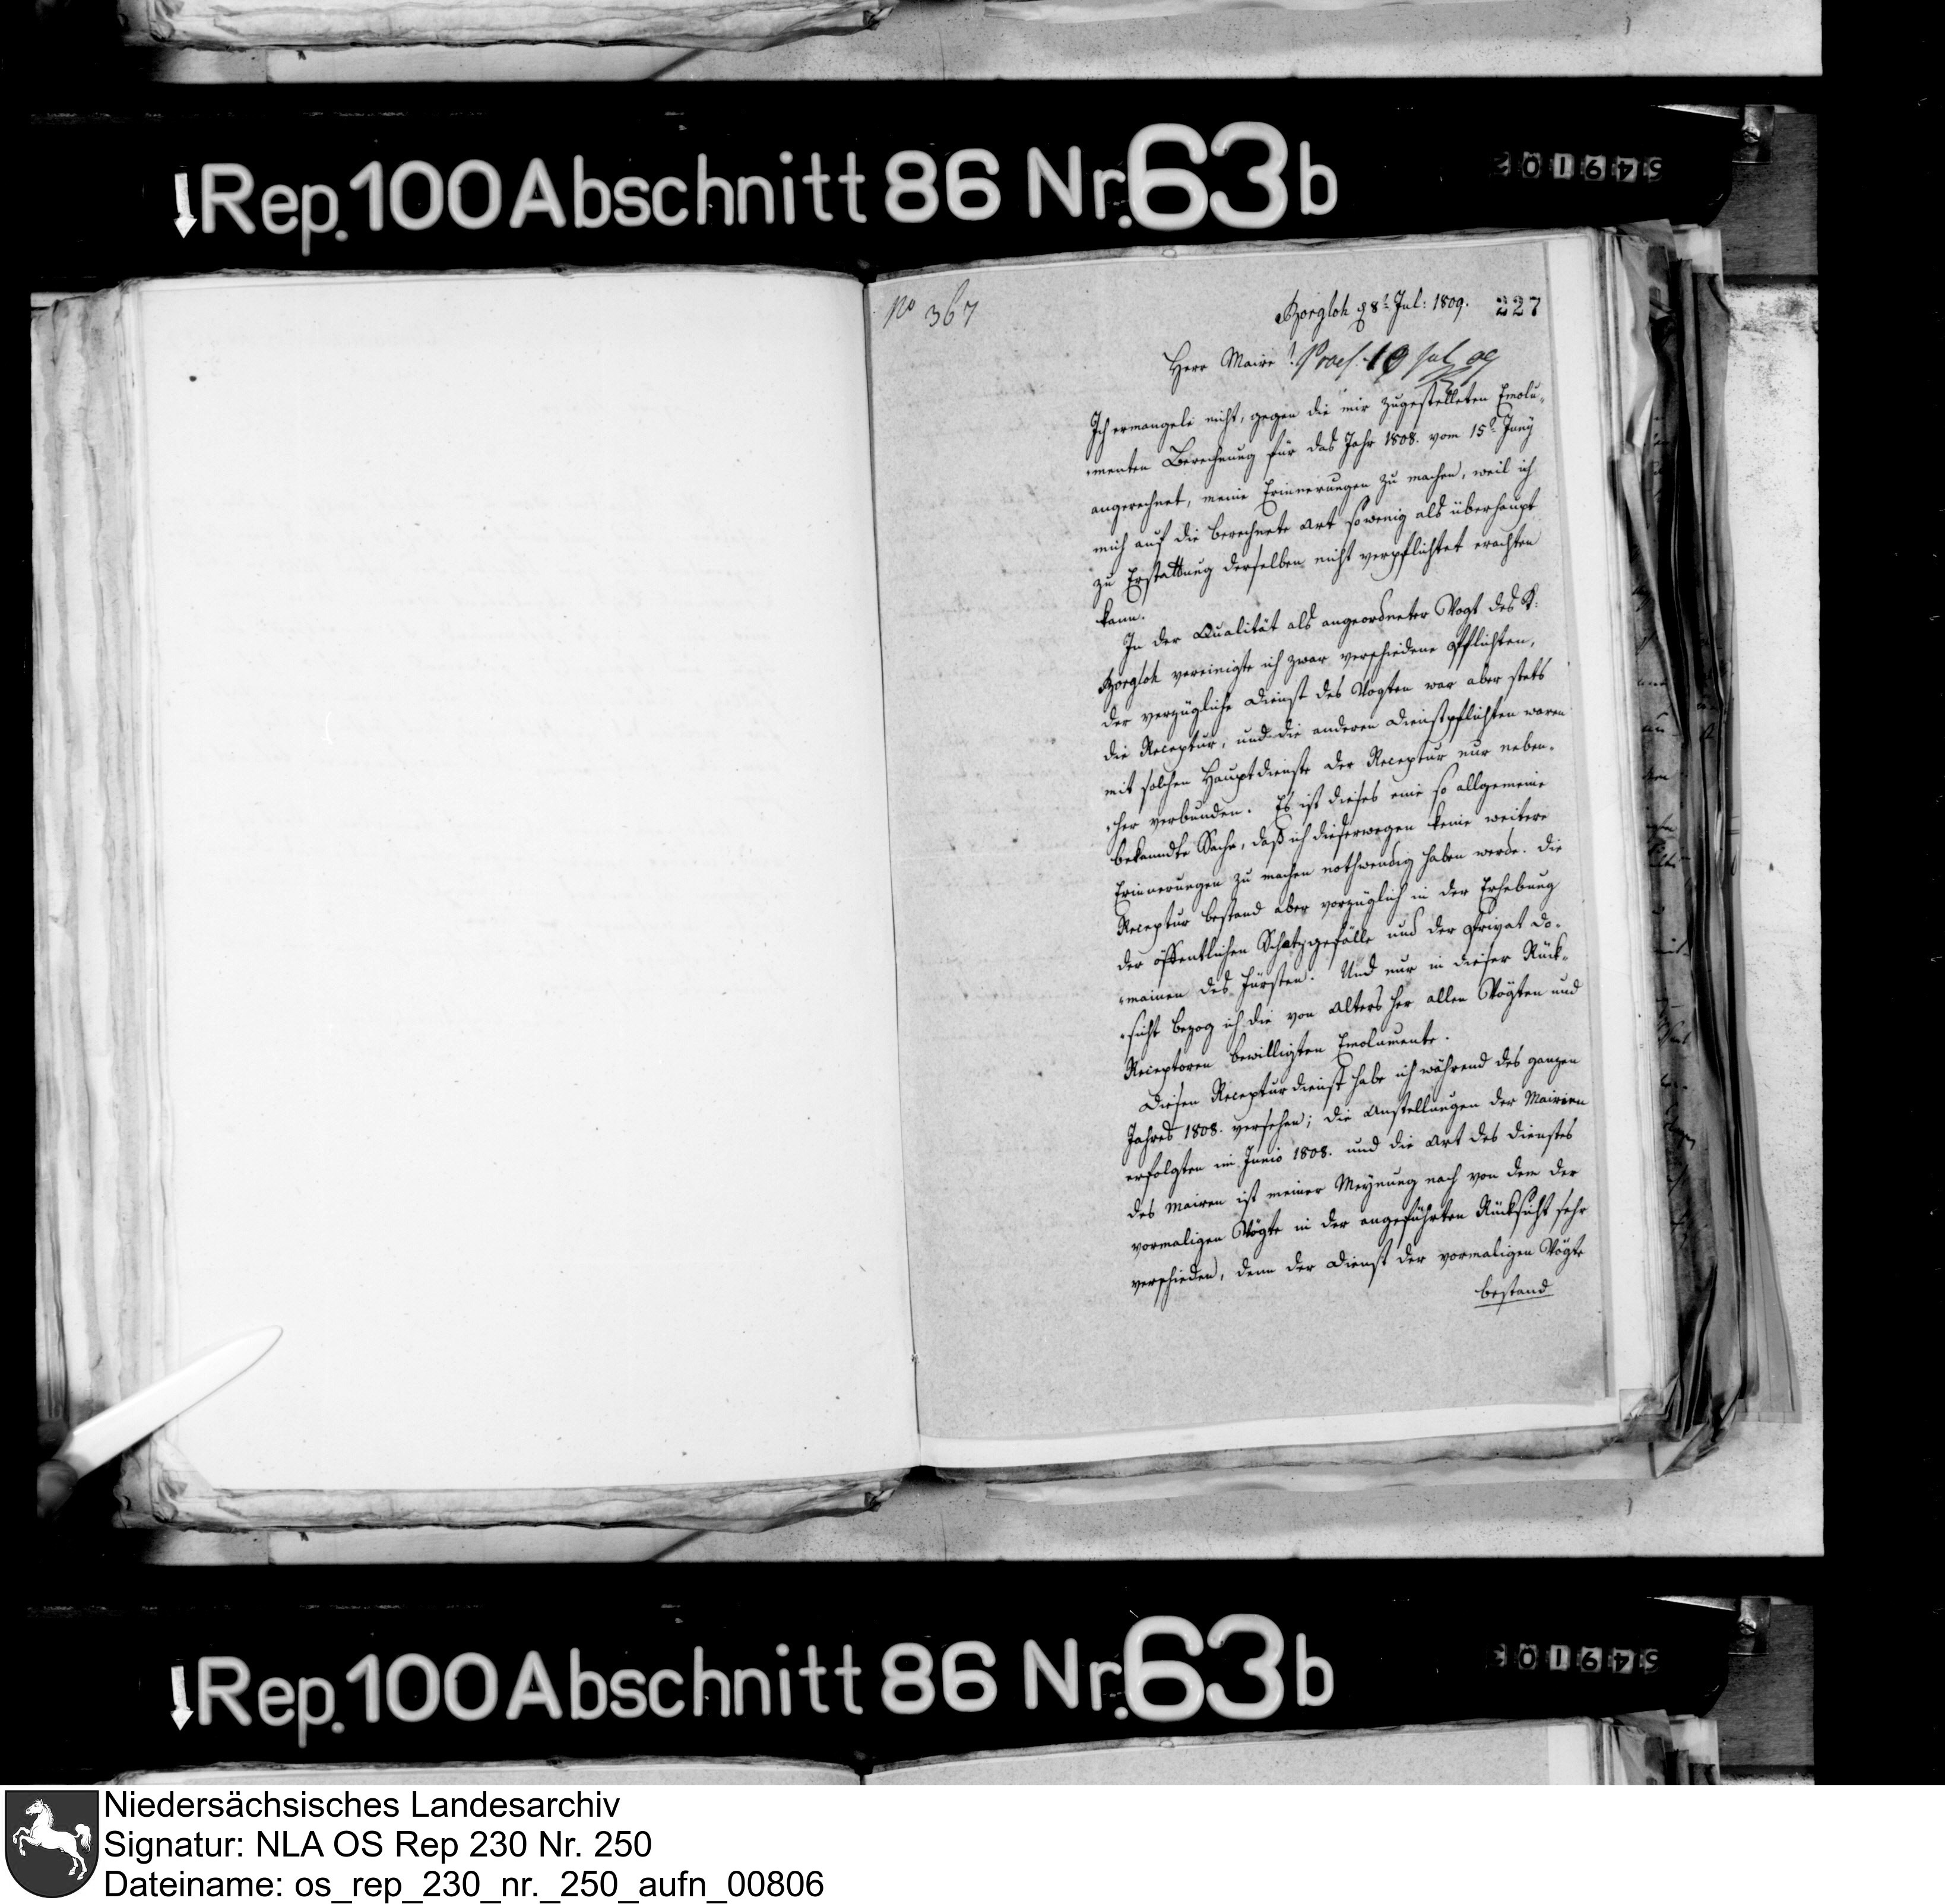 Rep. 100 Abschnitt 86 Nr. 63 b
201649
No 367
Borgloh d 8t Jul: 1809.
227
Herr Maire! Praes. 19 Jul 09
Ich ermangele nicht, gegen die mir zugestelleten Emolu-
-menten Berechnung für das Jahr 1808. vom 15t Juny
angerechnet, meine Erinnerungen zu machen, weil ich
mich auf die berechnete Art sowenig als überhaupt
zu Erstattung derselben nicht verpflichtet erachten
kann.
In der Qualität als angeordneter Vogt des K:
Borgloh vereinigte ich zwar verschiedene Pflichten,
der vorzügliche Dienst des Vogten war aber stets
die Receptur, und die anderen Dienstpflichten waren
mit solchen Hauptdienste der Receptur nur neben-
-her verbunden. Es ist dieses eine so allgemeine
bekanndte Sache, daß ich dieserwegen keine weitere
Erinnerungen zu machen nothwendig haben werde. Die
Receptur bestand aber vorzüglich in der Erhebung
der öffentlichen Schatzgefälle und der Privat Do-
-mainen des Fürsten. Und nur in dieser Rück-
-sicht bezog ich die von Alters her allen Vögten und
Receptoren bewilligten Emolumente.
Diesen Recepturdienst habe ich während des ganzen
Jahres 1808. versehen; die Anstellungen der Mairien
erfolgten im Junio 1808. und die Art des Dienstes
des Mairen ist meiner Meynung nach von dem der
vormaligen Vögte in der angeführten Rücksicht sehr
verschieden, denn der Dienst der vormaligen Vögte
bestand
Rep. 100 Abschnitt 86 Nr. 63 b
201649
Niedersächsisches Landesarchiv
Signatur: NLA OS Rep 230 Nr. 250
Dateiname: os_rep_230_nr._250_aufn_00806